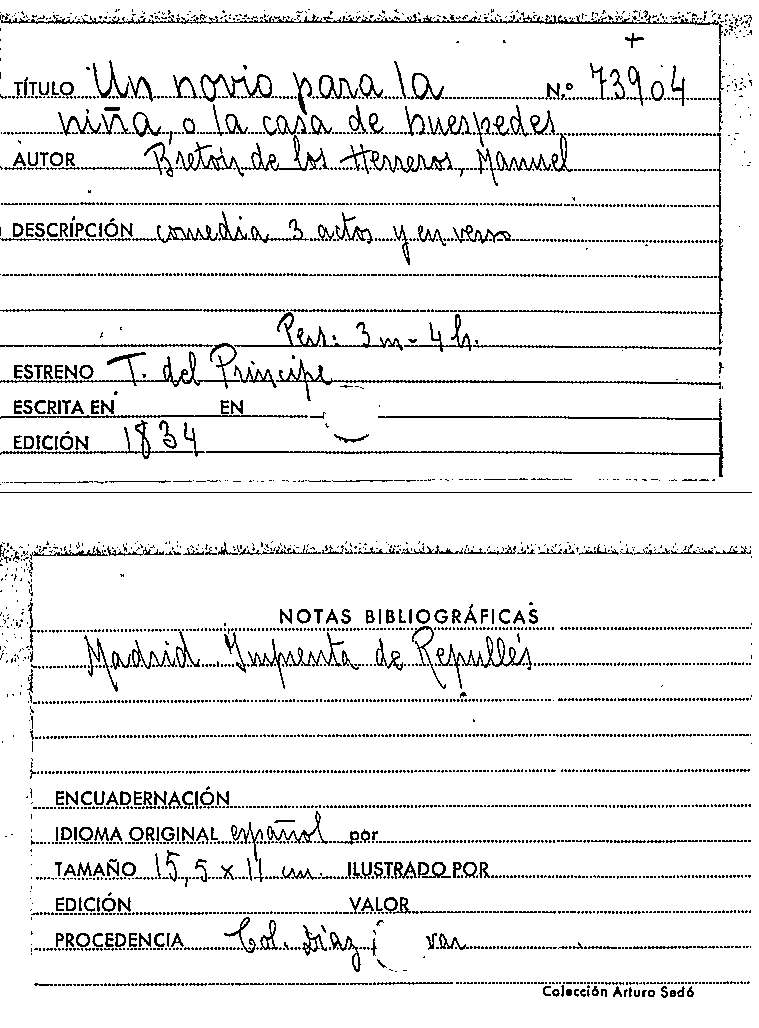 +
TÍTULO Un novio para la N.º 73904
niña, o la casa de huespedes
AUTOR Bretón de los Herreros, Manuel
DESCRÍPCIÓN comedia 3 actos y en verso
Pers: 3 m - 4 h.
ESTRENO T. del Príncipe
ESCRITA EN EN
EDICIÓN 1834
NOTAS BIBLIOGRÁFICAS
Madrid. Imprenta de Repullés
ENCUADERNACIÓN
IDIOMA ORIGINAL español por
TAMAÑO 15,5 x 11 cm. ILUSTRADO POR
EDICIÓN VALOR
PROCEDENCIA Col. Díaz
Colección Arturo Sedó